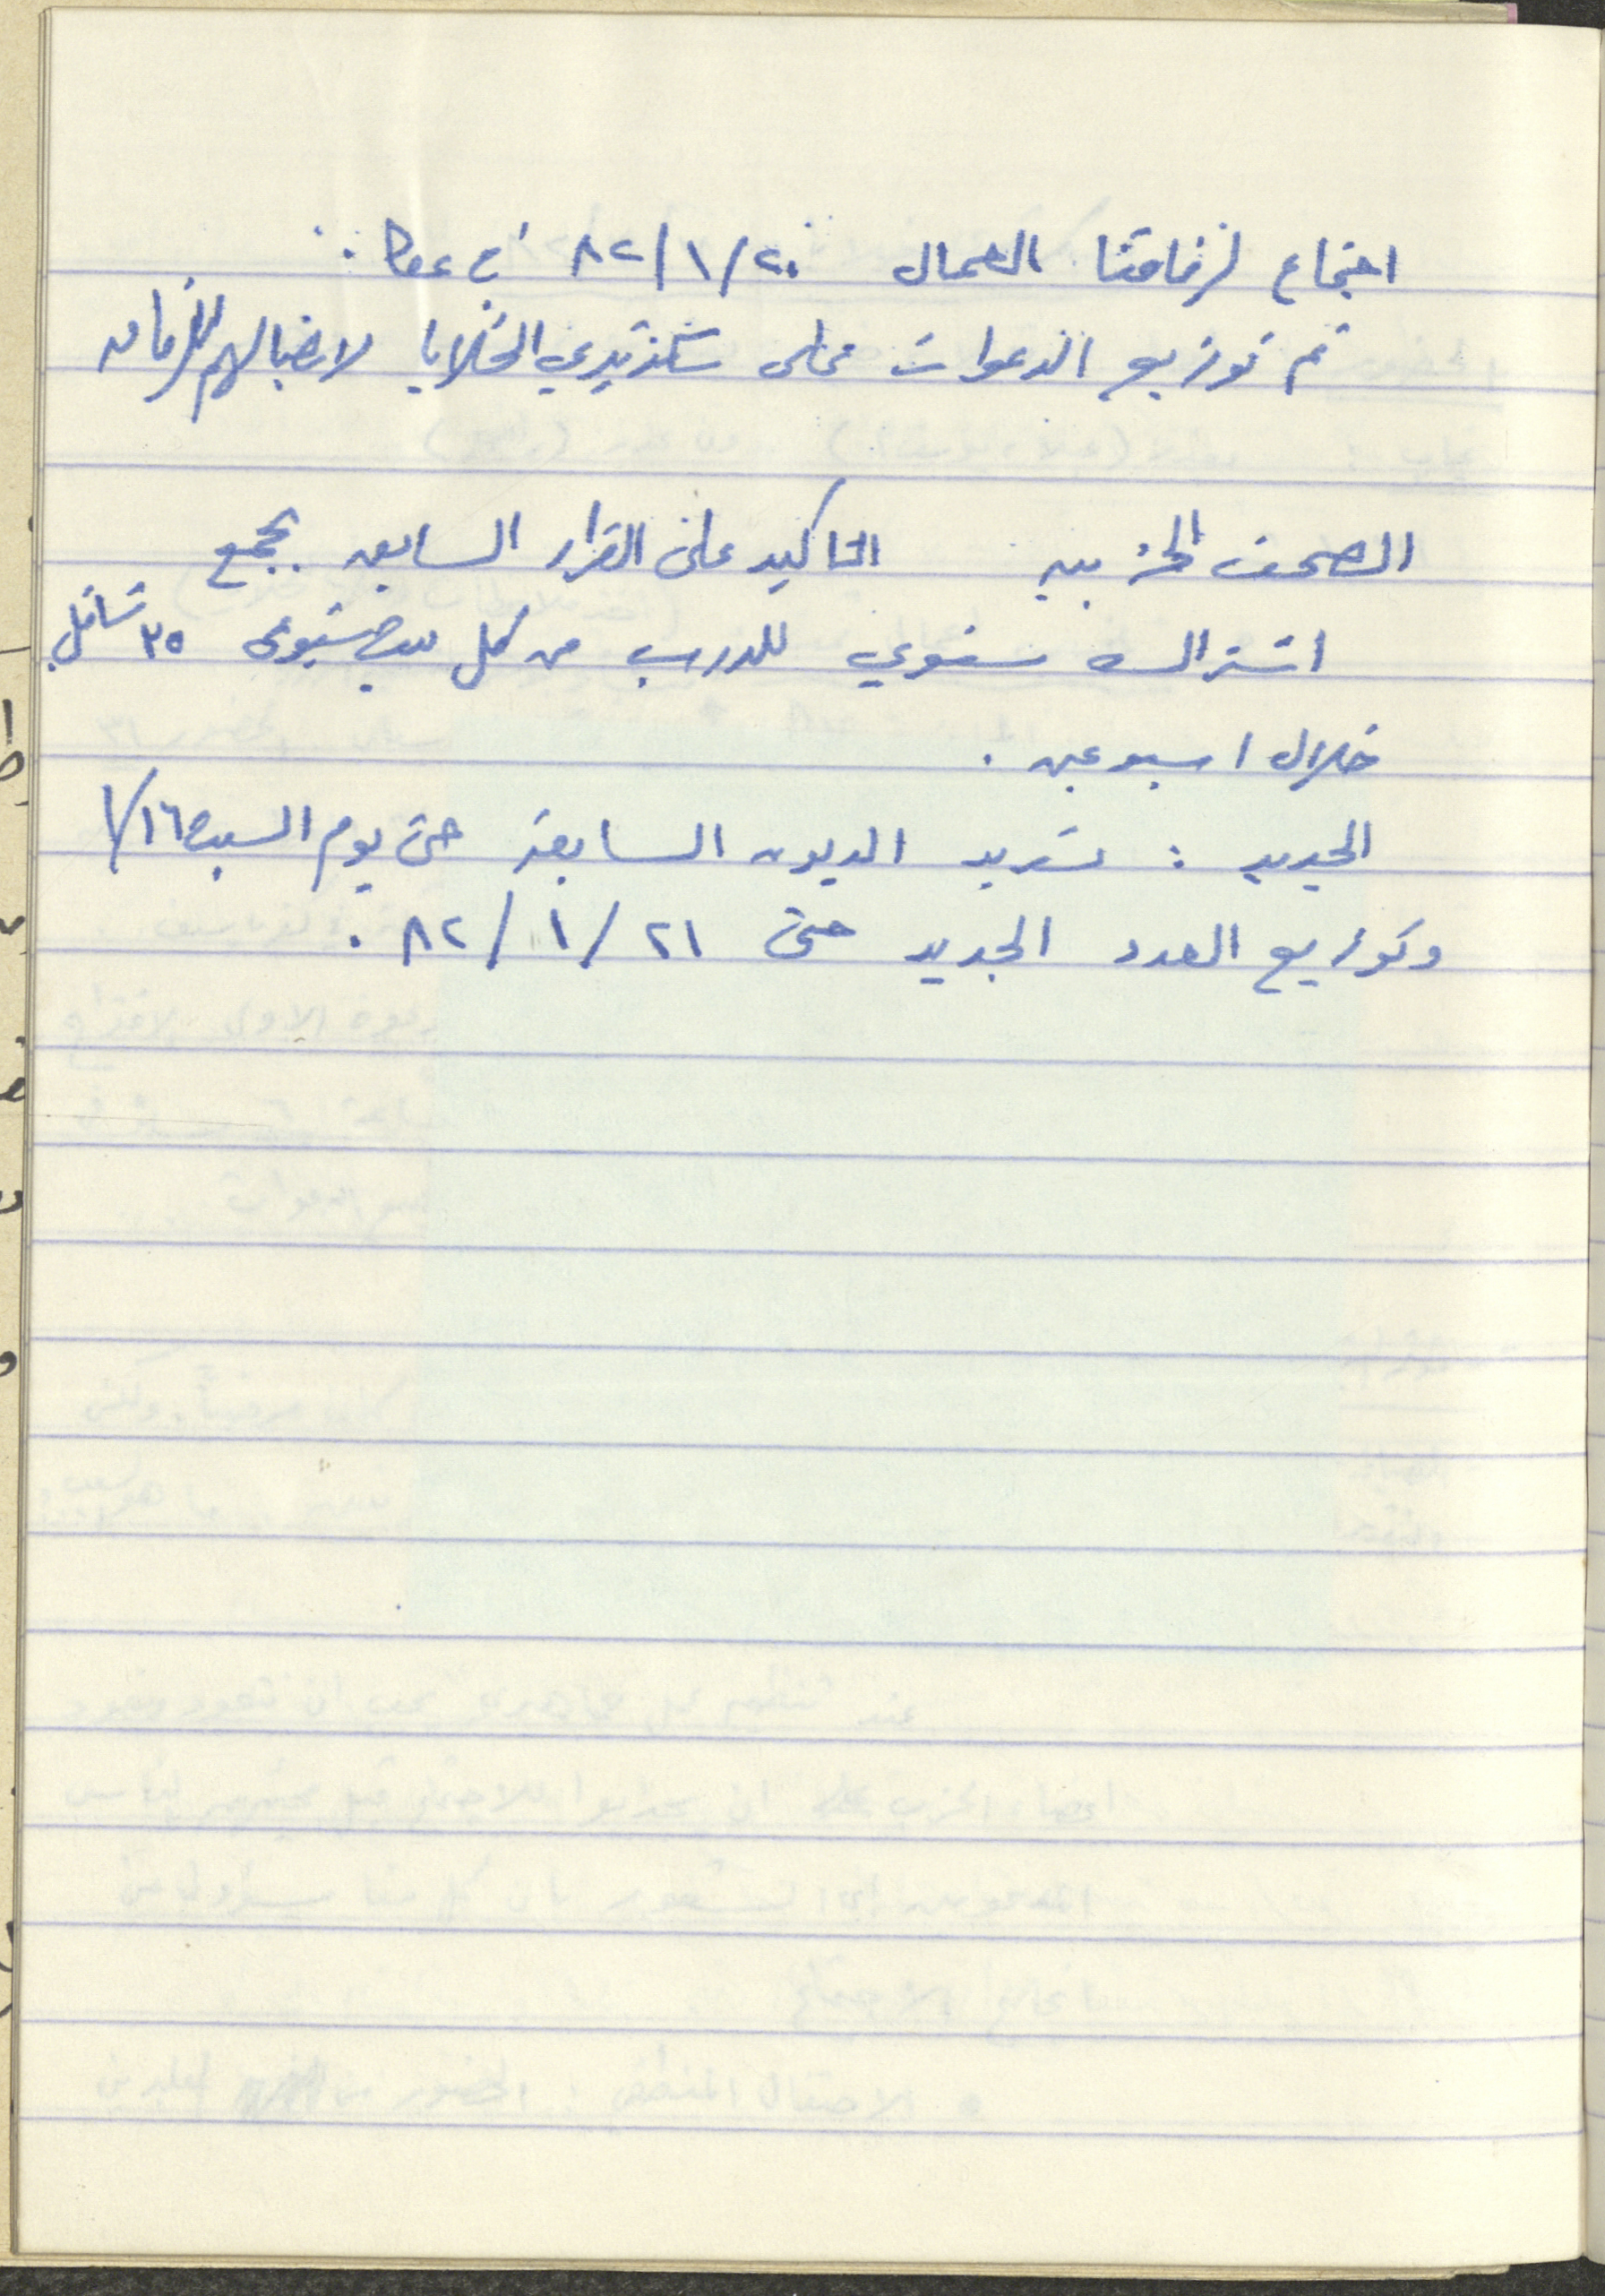 اجتماع لرفاقنا العمال ٢٠/١/٨٢ في عكا:
تم توزيع الدعوات على سكرتيري الخلايا لايصالهم للرفاق
الصحف الحزبية التاكيد على القرار السابق بجمع
اشتراك سنوي للدرب من كل بيت شيوعي ٣٥ شاقل
خلال اسبوعين.
الجديد: تسديد الديون السابقة حتى يوم السبت ١٦/١
وتوزيع العدد الجديد حتى ٢١/١/٨٢.